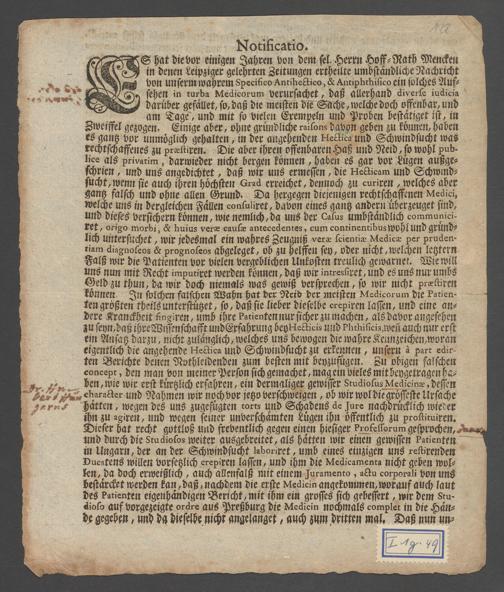 Notificatio.
ES hat die vor einigen Jahren von dem sel. Herrn Hoff-Rath Mencken
in denen Leipziger gelehrten Zeitungen ertheilte umbständliche Nachricht
von unserm wahren Specifico Antihectico, & Antiphthisico ein solches Auf-
sehen in turba Medicorum verursachet, daß allerhand diverse iudicia
darüber gefället, so, daß die meisten die Sache, welche doch offenbar, und
am Tage, und mit so vielen Exempeln und Proben bestätiget ist, in
Zweiffel gezogen. Einige aber, ohne gründliche raisons davon geben zu können, haben
es gantz vor unmöglich gehalten, in der angehenden Hectica und Schwindsucht was
rechtschaffenes zu præstiren. Die aber ihren offenbaren Haß und Neid, so wohl pub-
lice als privatim, darwieder nicht bergen können, haben es gar vor Lügen außge-
schrien, und uns angedichtet, daß wir uns ermessen, die Hecticam und Schwind-
sucht, wenn sie auch ihren höchsten Grad erreichet, dennoch zu curiren, welches aber
gantz falsch und ohne allen Grund. Da hergegen diejenigen rechtschaffenen Medici,
welche uns in dergleichen Fällen consuliret, davon eines gantz andern überzeuget sind,
und dieses versichern können, wie nemlich, da uns der Casus umbständlich communici-
ret, origo morbi, & huius veræ causæ antecedentes, cum continentibus wohl und gründ-
lich untersuchet, wir jedesmal ein wahres Zeugniß veræ scientiæ Medicæ per pruden-
tiam diagnoseos & prognoseos abgeleget, ob zu helffen sey, oder nicht, welchen letztern
Falß wir die Patienten vor vielen vergeblichen Unkosten treulich gewarnet. Wie will
uns nun mit Recht imputiret werden können, daß wir intressiret, und es uns nur umbs
Geld zu thun, da wir doch niemals was gewiß versprechen, so wir nicht præstiren
können. In solchen falschen Wahn hat der Neid der meisten Medicorum die Patien-
ten größten theils unterstützet, so, daß sie lieber dieselbe crepiren lassen, und eine an-
dere Kranckheit fingiren, umb ihre Patienten nur sicher zu machen, als davor angesehen
zu seyn, daß ihre Wissenschafft und Erfahrung bey Hecticis und Phthisicis, weil auch nur erst
ein Ansatz darzu, nicht zulänglich, welches uns bewogen die wahre Kennzeichen, woran
eigentlich die angehende Hectica und Schwindsucht zu erkennen, unsern à part edir-
ten Berichte denen Nothleidenden zum besten mit beyzufügen. Zu obigen falschen
concept, den man von meiner Person sich gemachet, mag ein vieles mit beygetragen ha-
ben, wie wir erst kürtzlich erfahren, ein dermaliger gewisser Studiosus Medicinæ, dessen
character und Nahmen wir noch vor jetzo verschweigen, ob wir wol die grösseste Ursache
hätten, wegen des uns zugefügten torts und Schadens de Jure nachdrücklich wieder
ihn zu agiren, und wegen seiner unverschämten Lügen ihn öffentlich zu prostituiren.
Dieser hat recht gottloß und freventlich gegen einen hiesiger Professorum gesprochen,
und durch die Studiosos weiter ausgebreitet, als hätten wir einen gewissen Patienten
in Ungarn, der an der Schwindsucht laboriret, umb eines einzigen uns restirenden
Ducatens willen vorsetzlich crepiren lassen, und ihm die Medicamenta nicht geben wol-
len, da doch erweißlich, auch allenfalß mit einem Juramento, actu corporali von uns
bestärcket werden kan, daß, nachdem die erste Medicin angekommen, worauf auch laut
des Patienten eigenhändigen Bericht, mit ihm ein grosses sich gebessert, wir dem Stu-
dioso auf vorgezeigte ordre aus Preßburg die Medicin nochmals complet in die Hän-
de gegeben, und da dieselbe nicht angelanget, auch zum dritten mal. Daß nun un-
I 1gr 49